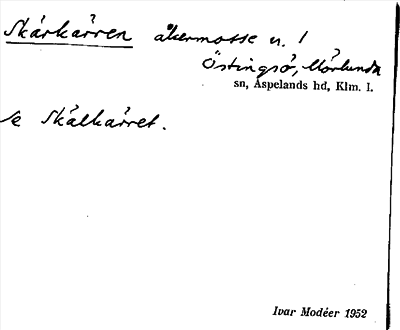 Skårkärren åkermosse n. 1
Östingsö, Mörlunda
sn, Aspelands hd, Klm. l.
se Skålkärret.
Ivar Modéer 1952